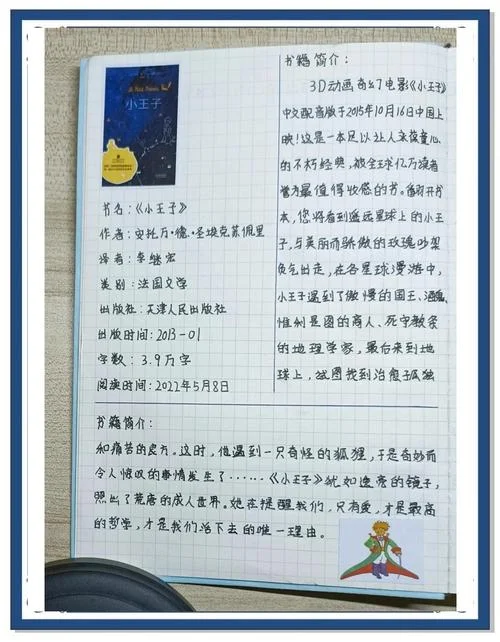 Le Petit Prince
小王子
书名：《小王子》
作者：安托万·德·圣埃克苏佩里
译者：李继宏
类别：法国文学
出版社：天津人民出版社
出版时间：2013-01
字数：3.9万字
阅读时间：2022年5月8日
书籍简介：
3D动画奇幻电影《小王子》
中文配音版于2015年10月16日中国上
映！这是一本足以让人永葆童心
的不朽经典，被全球亿万读者
誉为最值得收藏的书。翻开书
本，您将看到遥远星球上的小王
子，与美丽而骄傲的玫瑰吵架
负气出走，在各星球漫游中，
小王子遇到了傲慢的国王、酒鬼、
惟利是图的商人、死守教条
的地理学家，最后来到地
球上，试图找到治愈孤独
书籍简介：
和痛苦的良方。这时，他遇到一只奇怪的狐狸，于是奇妙而
令人惊叹的事情发生了……《小王子》犹如透亮的镜子，
照出了荒唐的成人世界。她在提醒我们，只有爱，才是最高
的哲学，才是我们活下去的唯一理由。